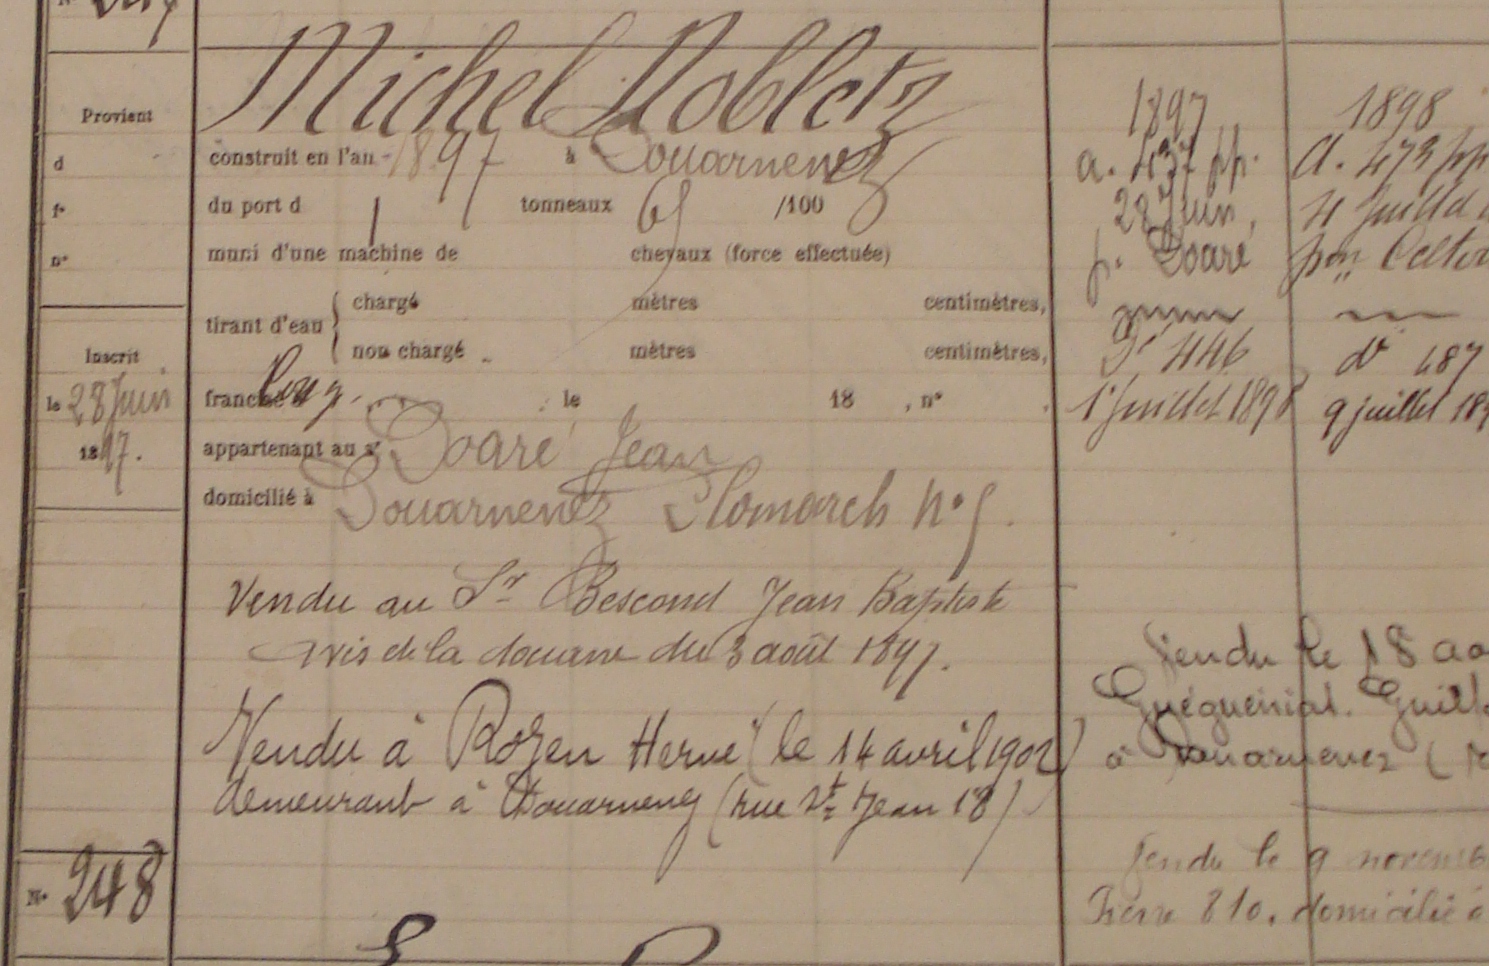 Michel Nobletz
Provient
construit en l'an 1897 à Douarnenez
d
du port d 1 tonneaux 65 /100
fo
muni d'une machine de chevaux (force effectuée)
no
tirant d'eau { chargé mètres centimètres,
non chargé mètres centimètres,
Inscrit
le 28 Juin
1897.
francisé le 18 , no
appartenant au sr Doaré Jean
domicilié à Douarnenez Plomarch No 5.
Vendu au Sr Bescond Jean Baptiste
avis de la douane du 3 août 1897.
Vendu à Rozen Hervé (le 14 avril 1902)
demeurant à Douarnenez (rue St Jean 18)
No 248
1897
a. 437 pp.
28 Juin,
p. Doaré
Do 446
1er Juillet 1898
1898
a. 473 pp
11 Juillet
par
do 487
9 juillet 189
Vendu le 18 ao
Guéguéniat. Guill
à Douarnenez (
Vendu le 9 novemb
Pierre 810. domicilié à